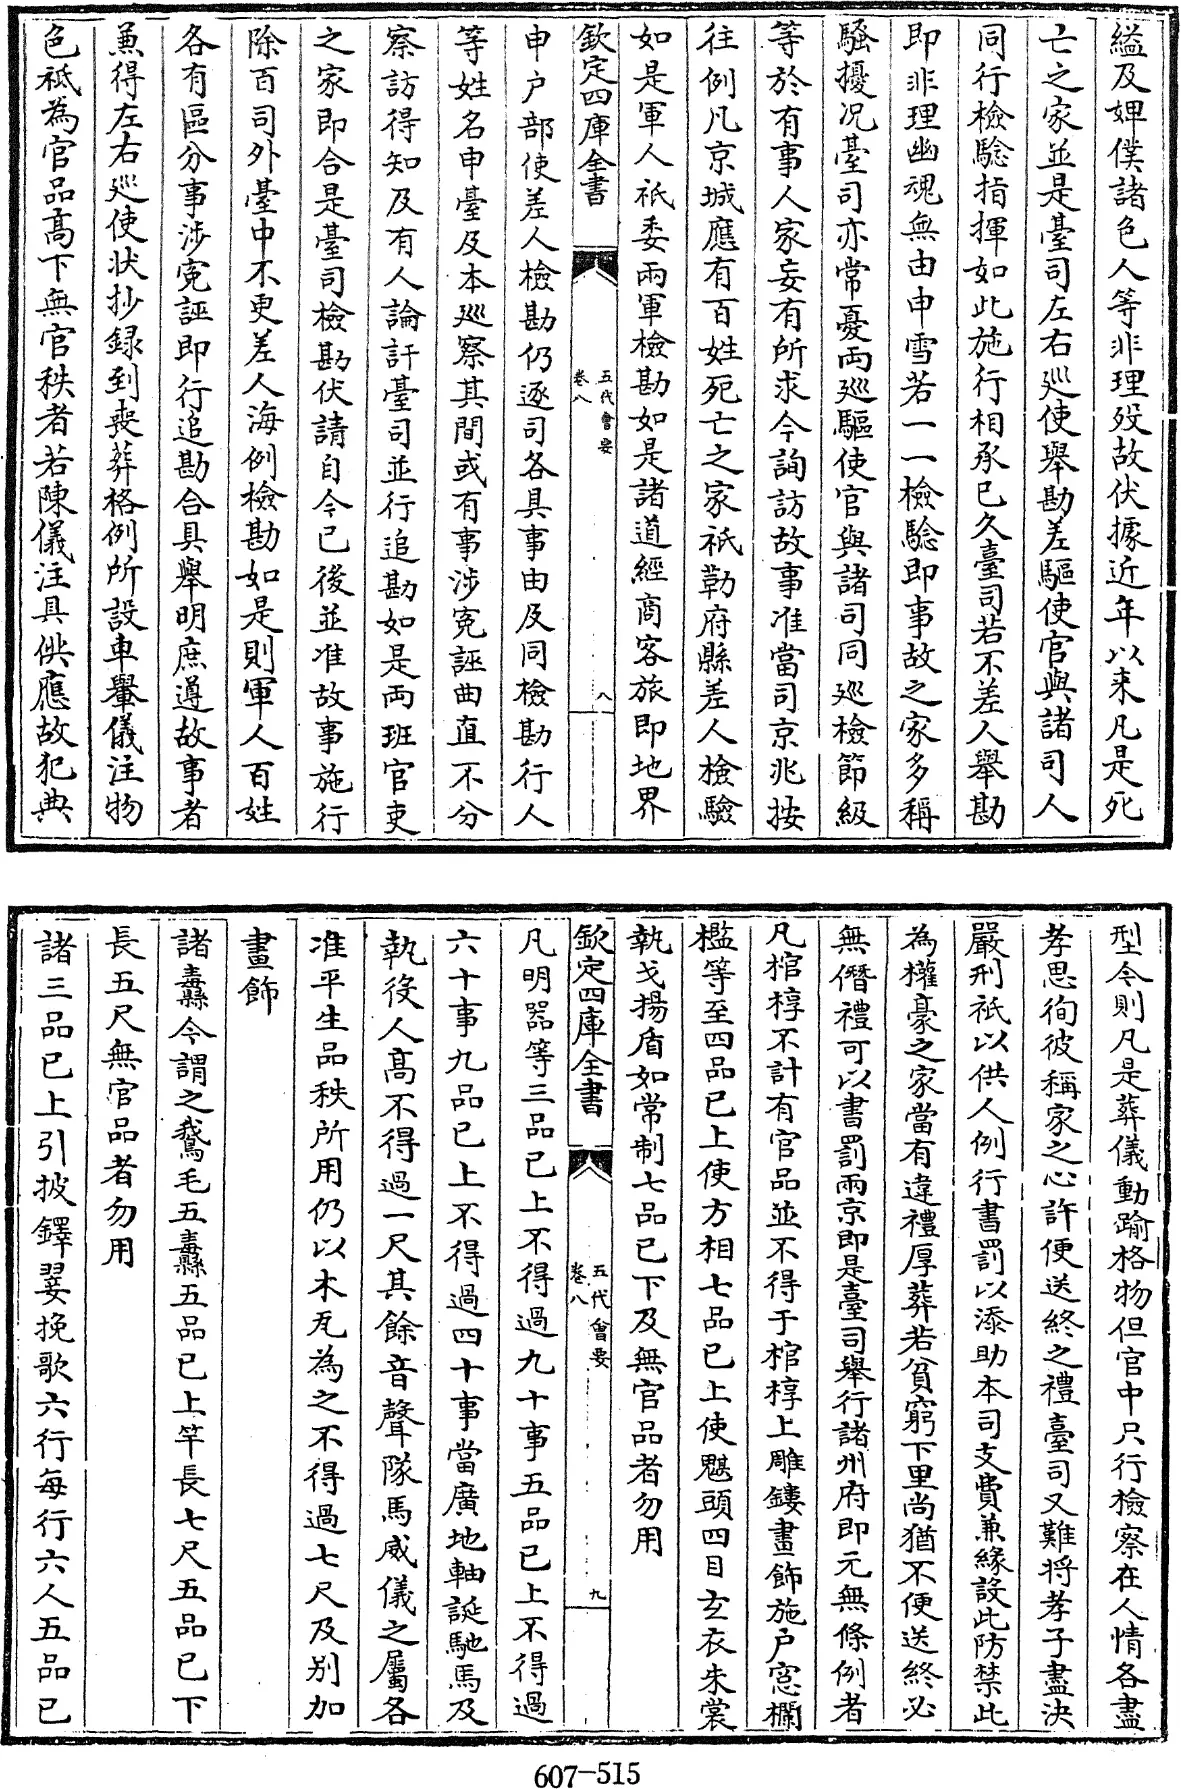 縊及婢僕諸色人等非理殁故伏據近年以来凡是死
亡之家並是臺司左右廵使舉勘差驅使官與諸司人
同行檢驗指揮如此施行相承已久臺司若不差人舉勘
即非理幽魂無由申雪若一一檢驗即事故之家多稱
騷擾况臺司亦常憂兩廵驅使官與諸司同廵檢節級
等於有事人家妄有所求今詢訪故事准當司京兆按
往例凡京城應有百姓死亡之家祇勒府縣差人檢驗
如是軍人祇委兩軍檢勘如是諸道經商客旅即地界
欽定四庫全書
五代會要
卷八
八
申户部使差人檢勘仍逐司各具事由及同檢勘行人
等姓名申臺及本廵察其間或有事涉寃誣曲直不分
察訪得知及有人論訐臺司並行追勘如是兩班官吏
之家即合是臺司檢勘伏請自今已後並准故事施行
除百司外臺中不更差人海例檢勘如是則軍人百姓
各有區分事涉寃誣即行追勘合具舉明庶遵故事者
兼得左右廵使狀抄録到喪葬格例所設車轝儀注物
色祇為官品高下無官秩者若陳儀注具供應故犯典
型令則凡是葬儀動踰格物但官中只行檢察在人情各盡
孝思徇彼稱家之心許便送終之禮臺司又難將孝子盡決
嚴刑祇以供人例行書罰以添助本司支費兼緣設此防禁此
為權豪之家當有違禮厚葬若貧窮下里尚猶不便送終必
無僭禮可以書罰兩京即是臺司舉行諸州府即元無條例者
凡棺椁不計有官品並不得于棺椁上雕鏤畫飾施户窓欄
檻等至四品已上使方相七品已上使魌頭四目玄衣朱裳
執戈揚盾如常制七品已下及無官品者勿用
欽定四庫全書
五代會要
卷八
九
凡明器等三品已上不得過九十事五品已上不得過
六十事九品已上不得過四十事當廣地軸誕馳馬及
執役人高不得過一尺其餘音聲隊馬威儀之屬各
准平生品秩所用仍以木瓦為之不得過七尺及别加
畫飾
諸纛今謂之鵞毛五纛五品已上竿長七尺五品已下
長五尺無官品者勿用
諸三品已上引披鐸翣挽歌六行每行六人五品已
607-515